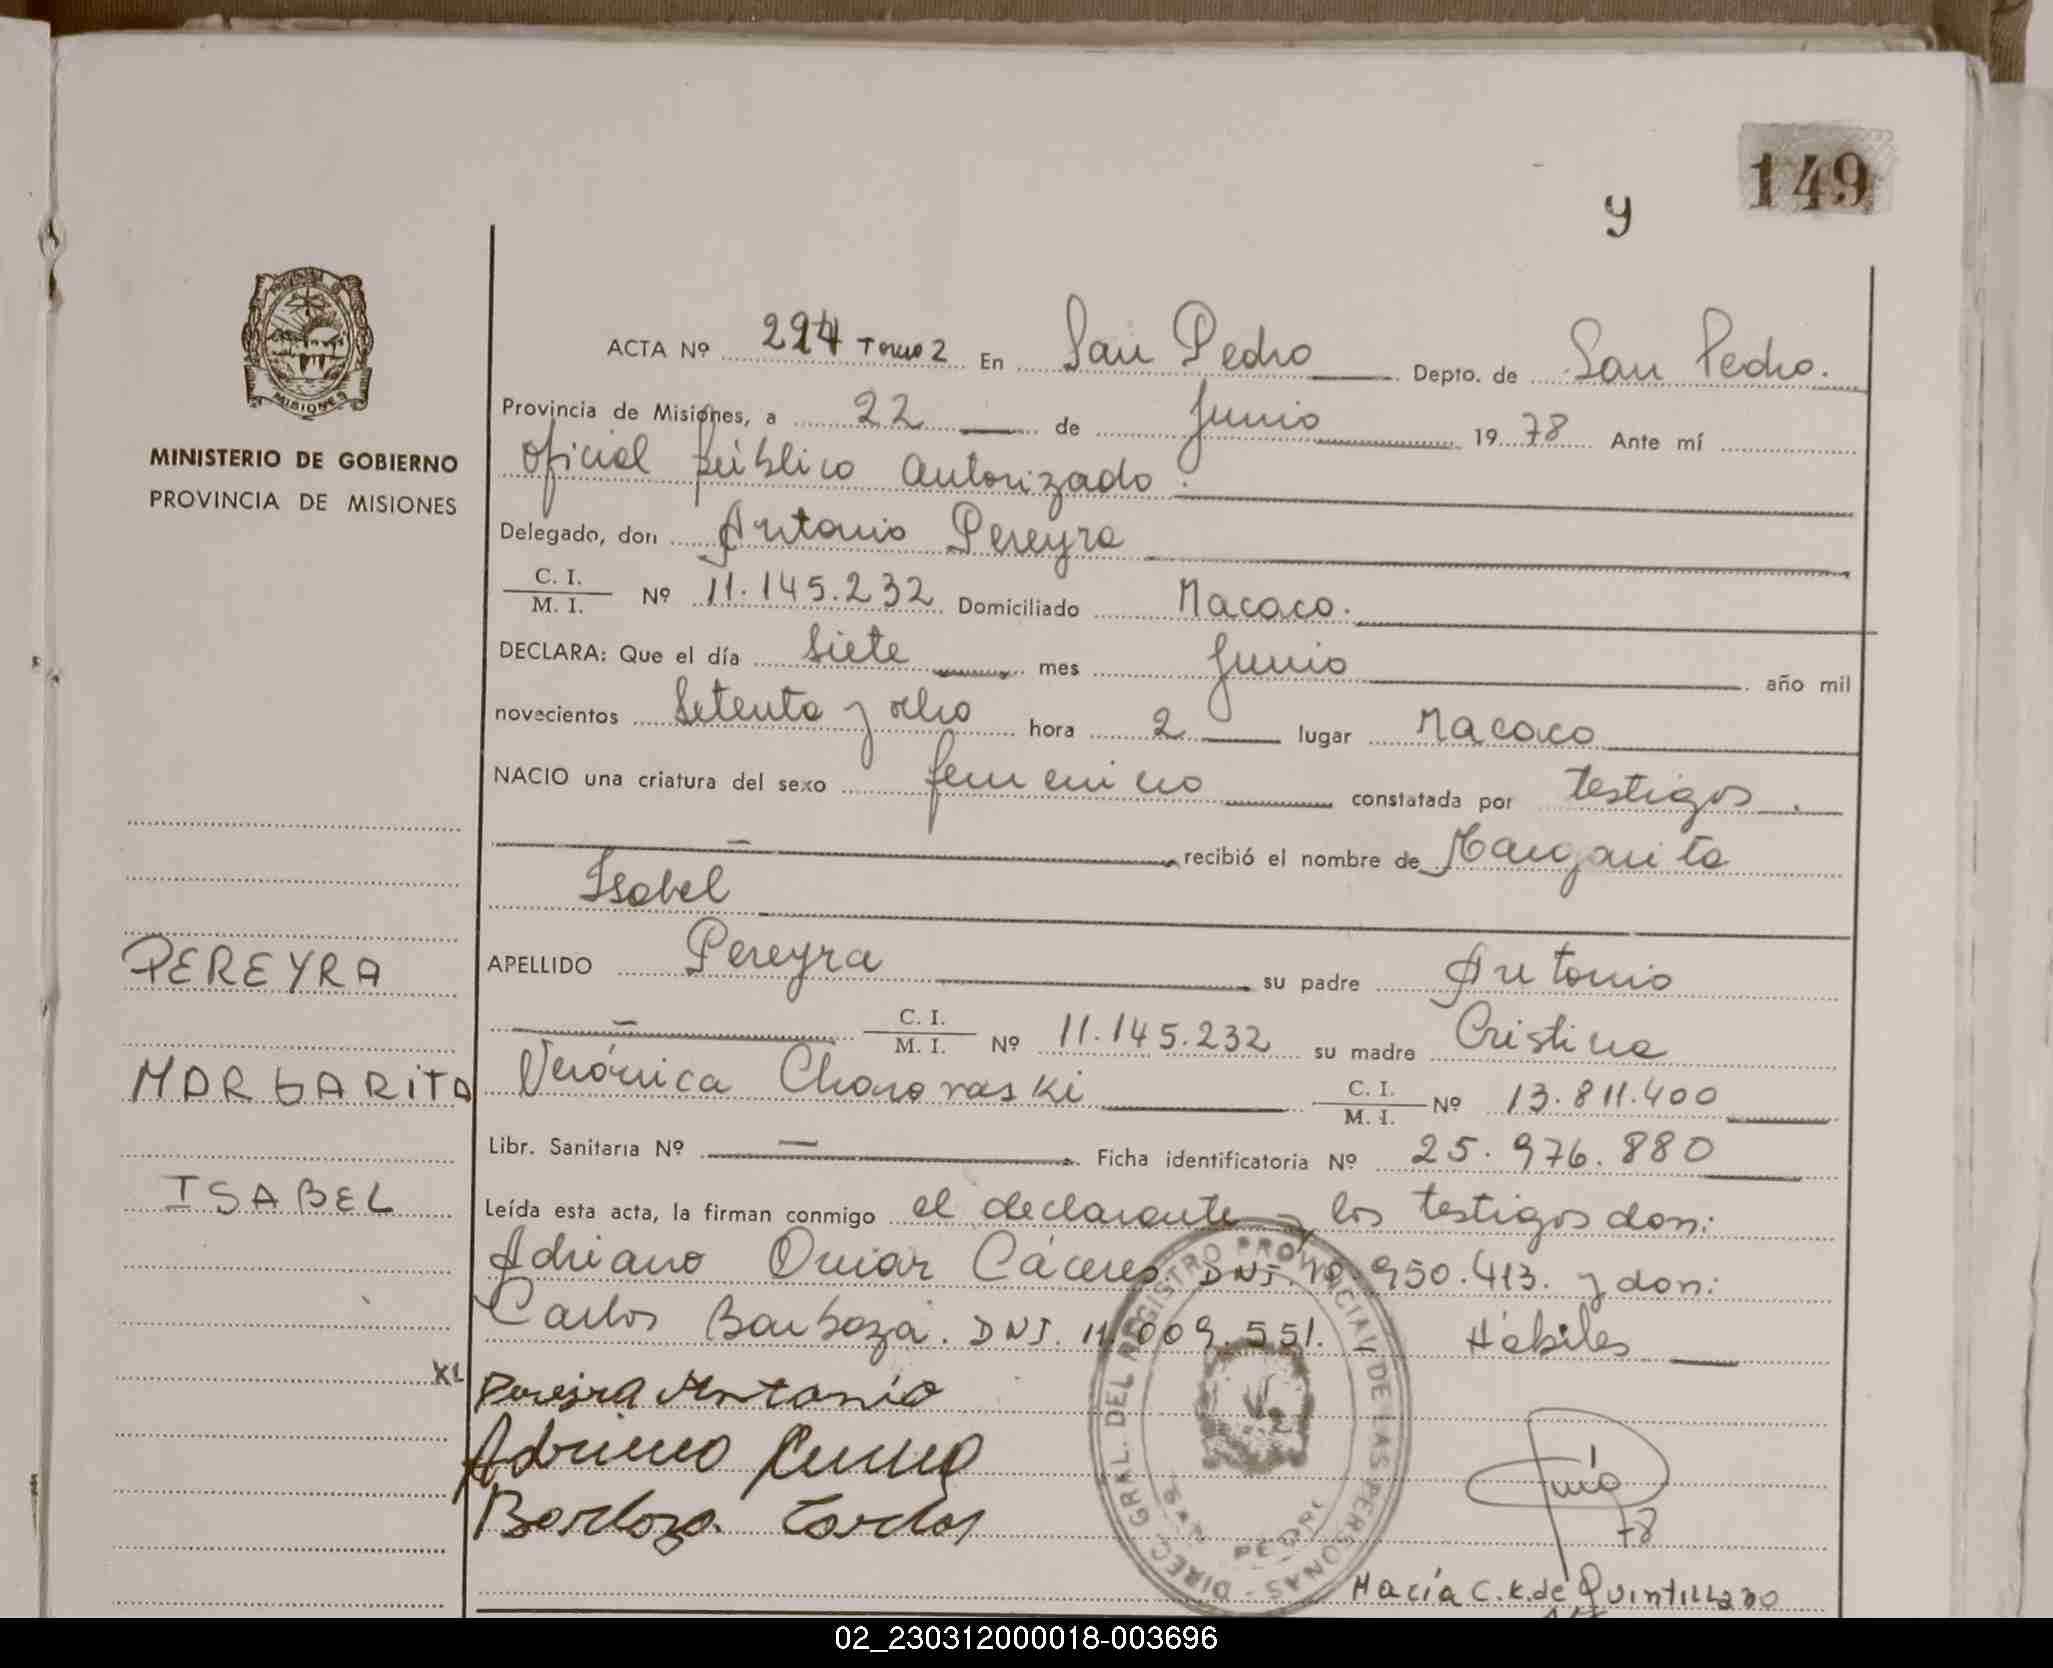 149
y
PROVINCIA DE
MISIONES
MINISTERIO DE GOBIERNO
PROVINCIA DE MISIONES
ACTA Nº 224 Tomo 2 En San Pedro Depto. de San Pedro.
Provincia de Misiones, a 22 de Junio 1978 Ante mí
oficial público autorizado.
Delegado, don Antonio Pereyra
C. I.
M. I. Nº 11.145.232 Domiciliado Macaco.
DECLARA: Que el día Siete mes Junio año mil
novecientos Setenta y ocho hora 2 lugar Macaco
NACIO una criatura del sexo femenino constatada por testigos.
— recibió el nombre de Margarita
Isabel
PEREYRA
APELLIDO Pereyra su padre Antonio
— C. I.
M. I. Nº 11.145.232 su madre Cristina
MARGARITA
Verónica Chororaski C. I.
M. I. Nº 13.811.400
Libr. Sanitaria Nº — Ficha identificatoria Nº 25.976.880
ISABEL
Leída esta acta, la firman conmigo el declarante y los testigos don:
Adriano Omar Cáceres. DNI. 10.950.413. y don:
Carlos Barboza. DNI. 11.009.551. Hábiles
XL
Pereira Antonio
Adriano
Barboza Carlos
DIREC. GRAL. DEL REGISTRO PROVINCIAL DE LAS PERSONAS -
SAN PEDRO
78
María C.K.de Quintillano
02_230312000018-003696